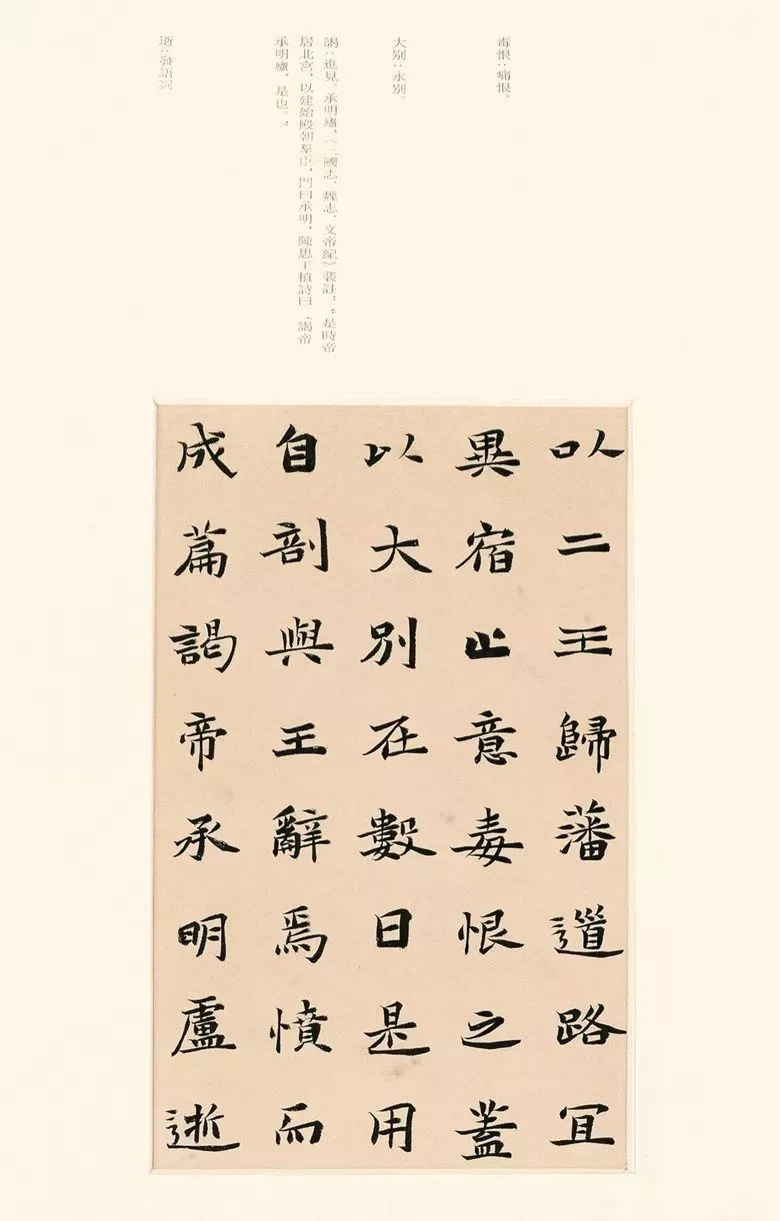 毒恨：痛恨。
大别：永别。
謁：進見。承明廬，《三國志、魏志、文帝紀》裴註：“是時帝
居北宫，以建始殿朝羣臣，門曰承明，陳思王植詩曰‘謁帝
承明廬，是也。”
逝：發語詞
以二王歸藩道路宜
異宿止意毒恨之蓋
以大別在數日是用
自剖與王辭焉憤而
成篇謁帝承明盧逝